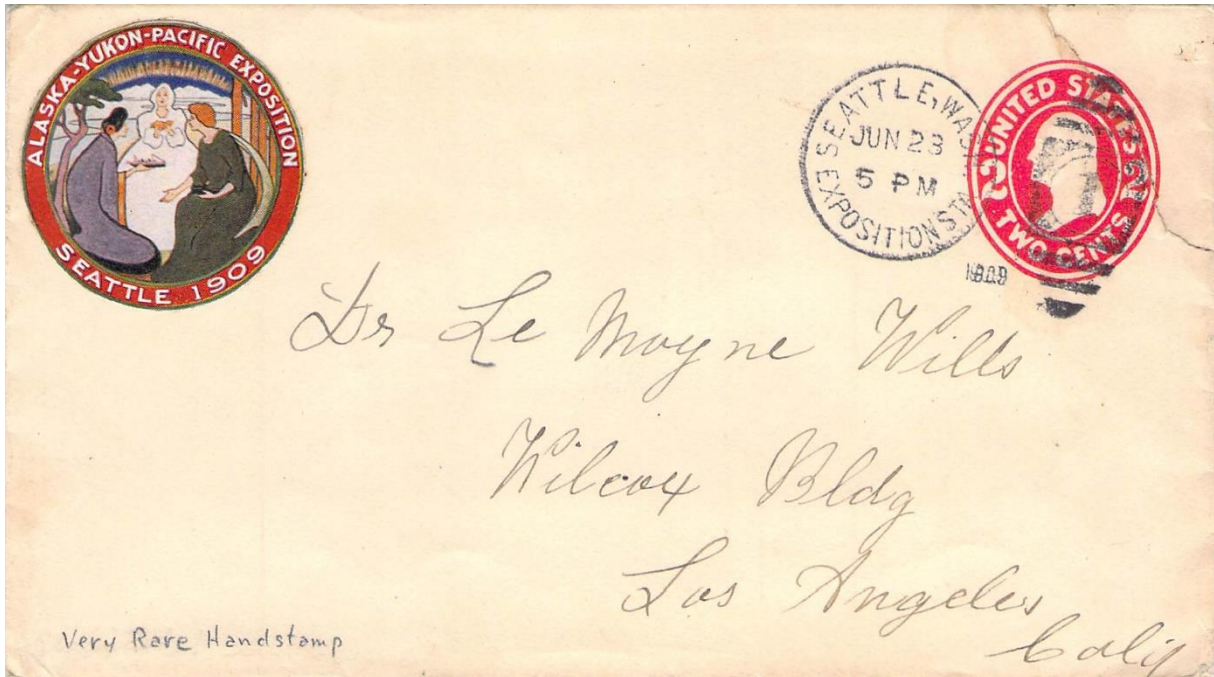 ALASKA-YUKON-PACIFIC EXPOSITION
SEATTLE 1909
SEATTLE, WASH.
JUN 23
5 PM
EXPOSITION STA.
1909
UNITED STATES
2 2
TWO CENTS
Dr Le Moyne Wills
Wilcox Bldg
Los Angeles
Calif
Very Rare Handstamp